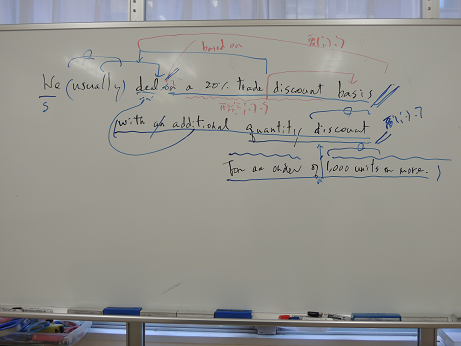 based on
We (usually) deal on a 20% trade discount basis
S
with an additional quantity discount
for an order of 1,000 units or more.)